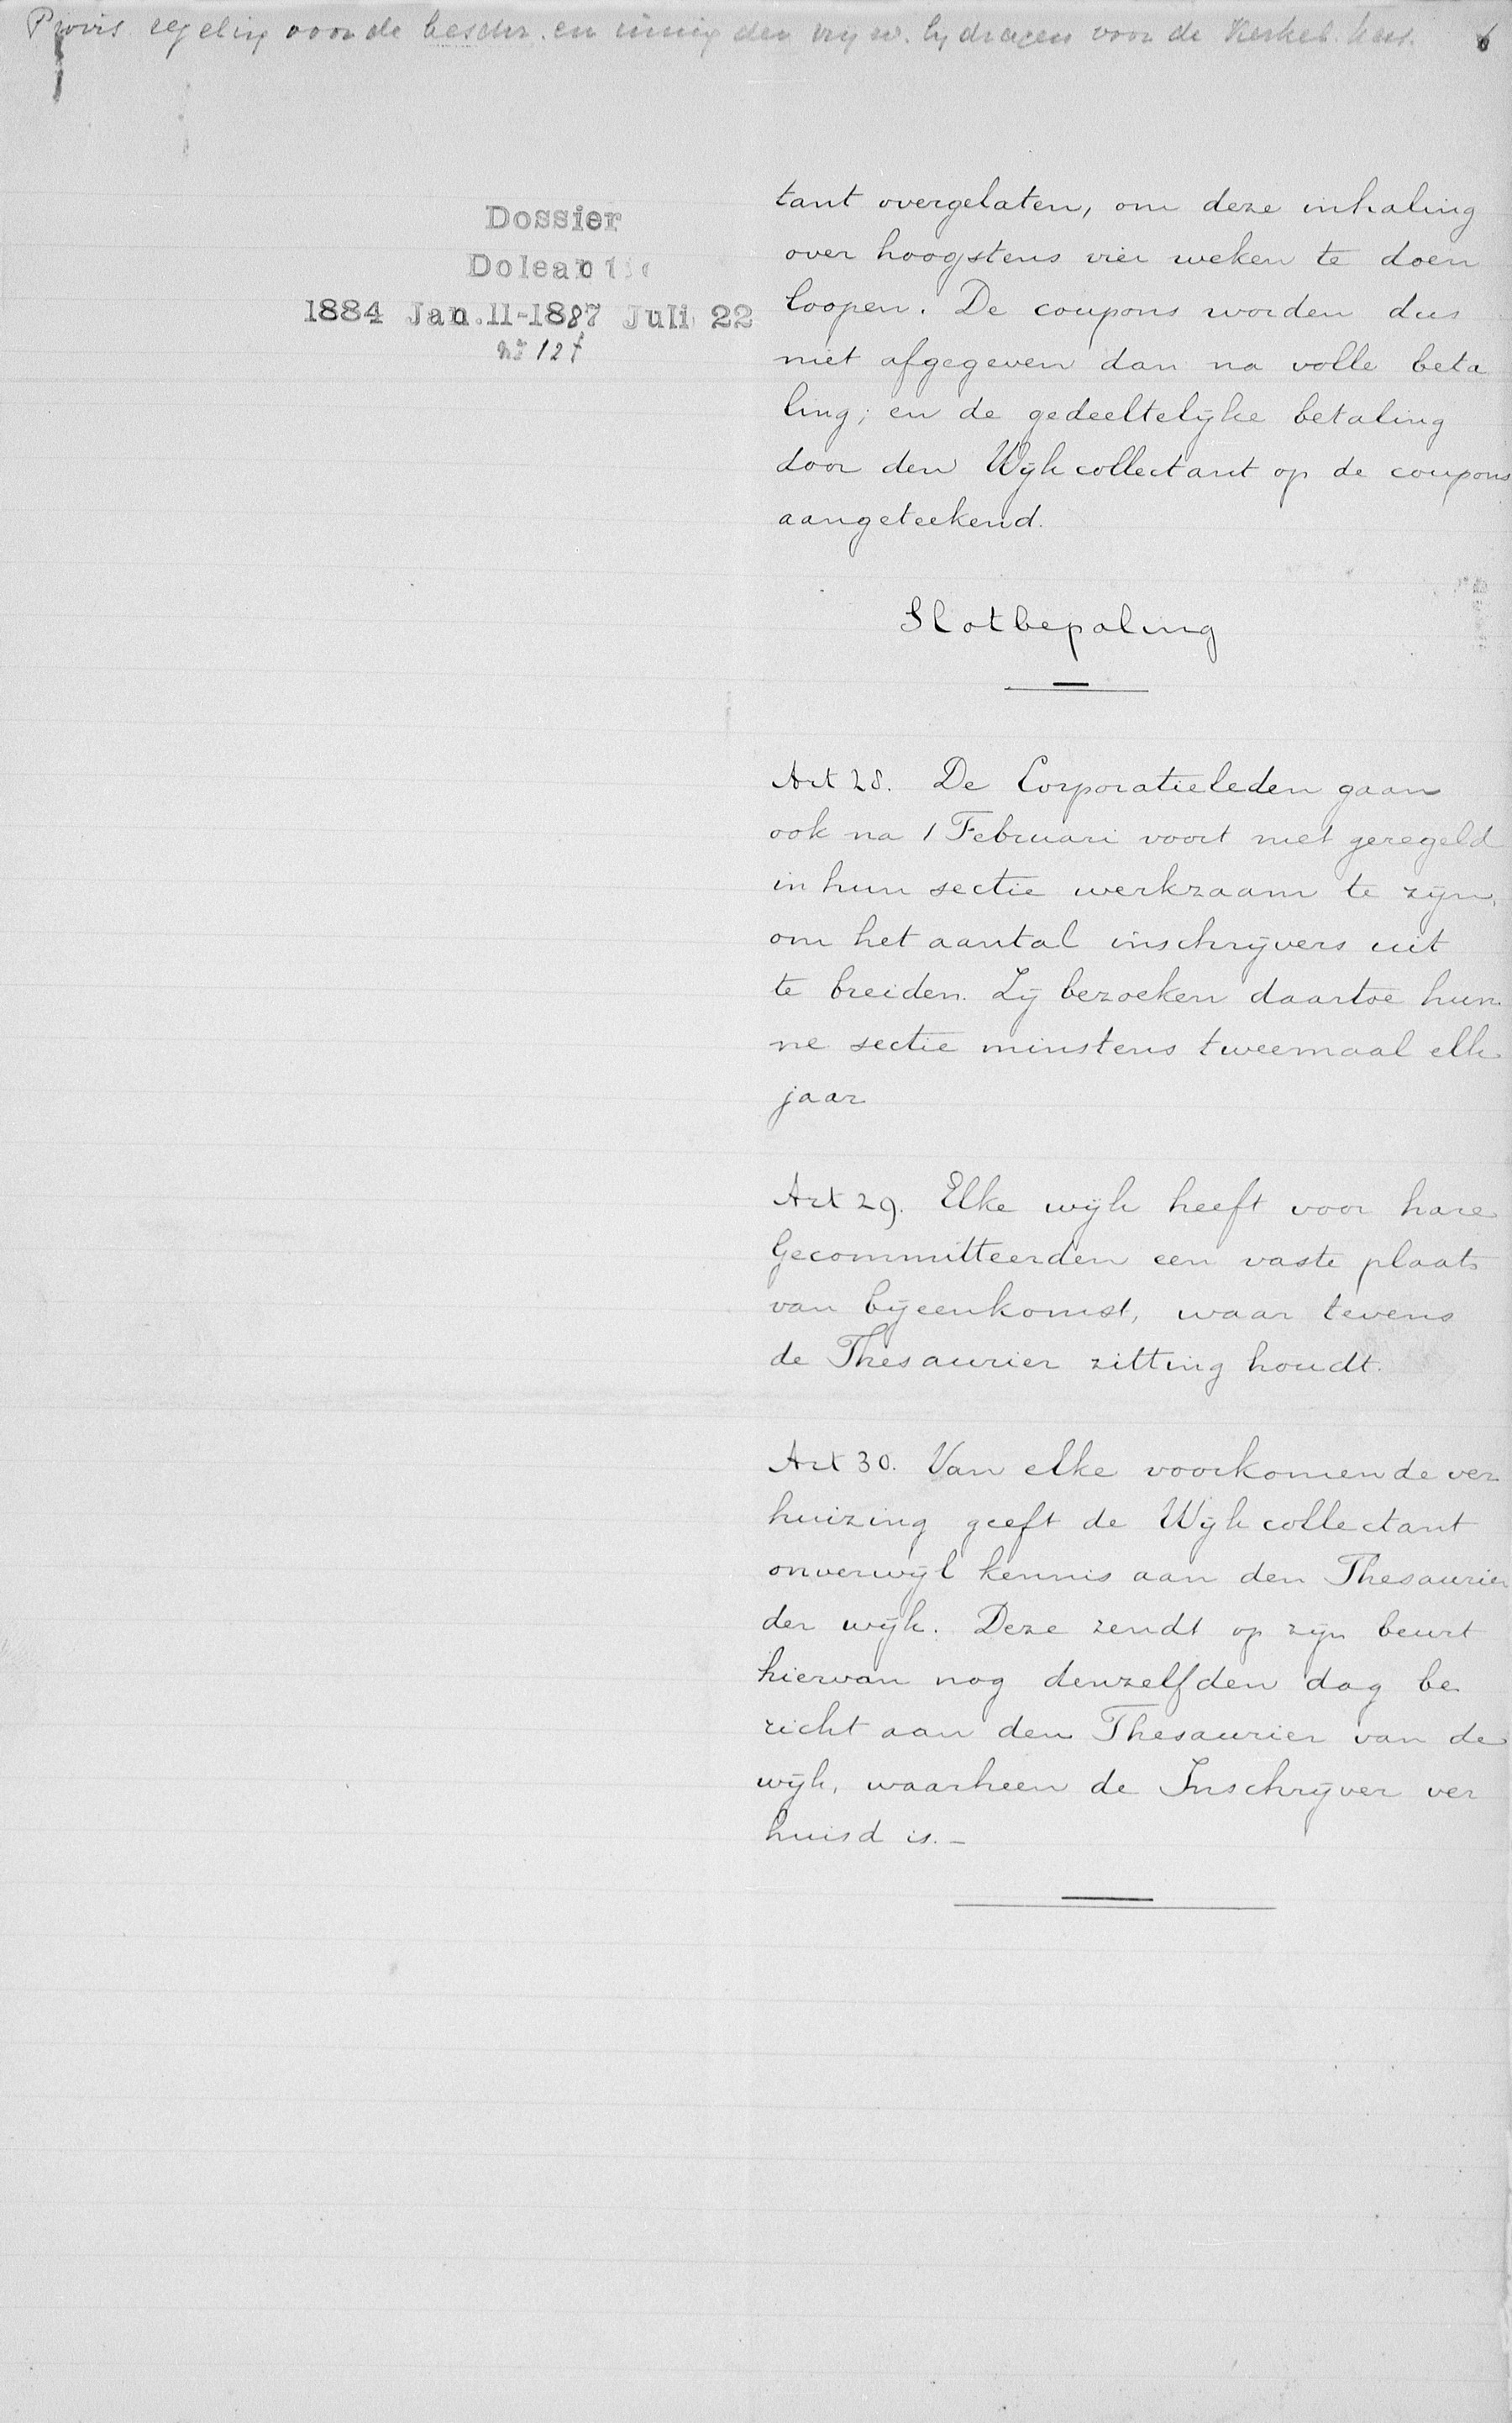 Provis regeling voor de beschr. en inning der vryw. bydragen voor de Kerkel. kas. 6
Dossier
Doleantie
1884 Jan. 11-1887 Juli 22
no 12f
tant overgelaten, om deze inhaling
over hoogstens vier weken te doen
loopen. De coupons worden dus
niet afgegeven dan na volle beta
ling; en de gedeeltelijke betaling
door den Wijkcollectant op de coupons
aangeteekend.
Slotbepaling
Art 28. De Corporatieleden gaan
ook na 1 Februari voort met geregeld
in hun sectie werkzaam te zijn,
om het aantal inschrijvers uit
te breiden. Zij bezoeken daartoe hun
ne sectie minstens tweemaal elk
jaar
Art 29. Elke wijk heeft voor hare
Gecommitteerden een vaste plaats
van bijeenkomst, waar tevens
de Thesaurier zitting houdt.
Art 30. Van elke voorkomende ver
huizing geeft de Wijkcollectant
onverwijl kennis aan den Thesaurier
der wijk. Deze zendt op zijn beurt
hiervan nog denzelfden dag be
richt aan den Thesaurier van de
wijk, waarheen de Inschrijver ver
huisd is.-